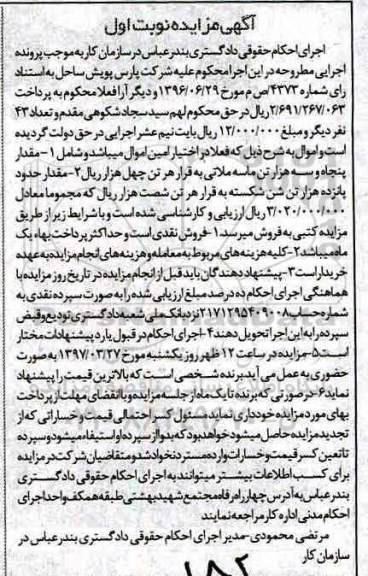 آگهی مزایده نوبت اول
اجرای احکام حقوقی دادگستری بندرعباس در سازمان کار به موجب پرونده
اجرایی مطروحه در این اجرا محکوم علیه شرکت پارس پویش ساحل به استناد
رای شماره ۴۳۷۳/ص م مورخ ۱۳۹۶/۰۶/۲۹ و دیگر آرا فعلا محکوم به پرداخت
۲/۶۹۱/۲۶۷/۰۶۳ ریال در حق محکوم لهم سید سجاد شکوهی مقدم و تعداد ۴۳
نفر دیگر و مبلغ ۱۲/۰۰۰/۰۰۰ ریال بابت نیم عشر اجرایی در حق دولت گردیده
است و اموال به شرح ذیل که فعلا در اختیار امین اموال میباشد و شامل ۱-مقدار
پنجاه و سه هزار تن ماسه ملاتی به قرار هر تن چهل هزار ریال ۲-مقدار حدود
پانزده هزار تن شن شکسته به قرار هر تن شصت هزار ریال که مجموعا معادل
۳/۰۲۰/۰۰۰/۰۰۰ ریال ارزیابی و کارشناسی شده است و با شرایط زیر از طریق
مزایده کتبی به فروش میرسد ۱-فروش نقدی است و حداکثر پرداخت بهاء یک
ماه میباشد ۲-کلیه هزینه های مربوط به معامله و هزینه های انجام مزایده به عهده
خریدار است ۳-پیشنهاد دهندگان باید قبل از انجام مزایده در تاریخ روز مزایده با
هماهنگی اجرای احکام ده درصد مبلغ ارزیابی شده را به صورت سپرده نقدی به
شماره حساب ۲۱۷۱۲۹۵۴۰۹۰۰۸ نزد بانک ملی شعبه دادگستری تودیع و قبض
سپرده را به این اجرا تحویل دهند ۴-اجرای احکام در قبول یا رد پیشنهادات مختار
است ۵-مزایده در ساعت ۱۲ ظهر روز یکشنبه مورخ ۱۳۹۷/۰۳/۲۷ به صورت
حضوری به عمل می آید برنده شخصی است که بالاترین قیمت را پیشنهاد
نماید ۶-در صورتی که برنده تا یک ماه از جلسه مزایده و با انقضای مهلت از پرداخت
بهای مورد مزایده خودداری نماید مسئول کسر احتمالی قیمت و خساراتی که از
تجدید مزایده حاصل میشود خواهد بود که بدوا از سپرده او استیفاء میشود و سپرده
تا تعیین کسر قیمت و خسارات وارده مسترد نخواهد شد و متقاضیان شرکت در مزایده
برای کسب اطلاعات بیشتر میتوانند به اجرای احکام حقوقی دادگستری
بندرعباس به آدرس چهارراه رفاه مجتمع شهید بهشتی طبقه همکف واحد اجرای
احکام مدنی اداره کار مراجعه نمایند
مرتضی محمودی-مدیر اجرای احکام حقوقی دادگستری بندرعباس در
سازمان کار
۱۸۲